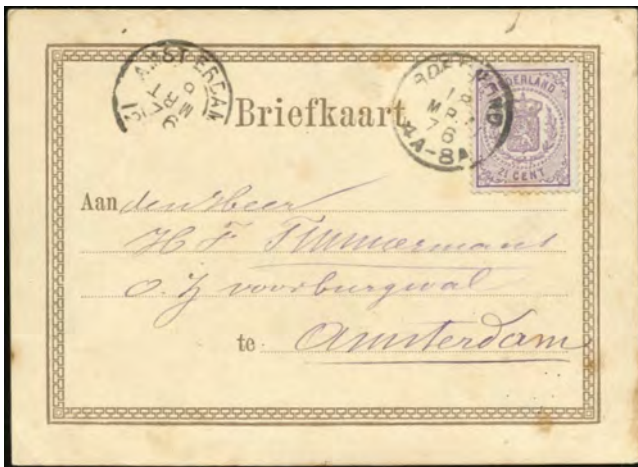 AMSTERDAM
MRT
76
ROERMOND
MRT
76
4A-8A
NEDERLAND
2½ CENT
Briefkaart
Aan den Heer
H F Timmermans
O. Z voorburgwal
te Amsterdam